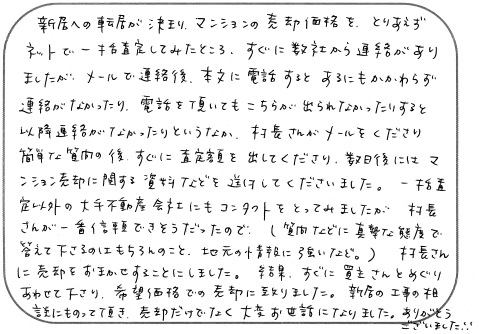 新居への転居が決まり、マンションの売却価格を、とりあえず
ネットで一括査定してみたところ、すぐに数社から連絡があり
ましたが、メールで連絡後、本文に電話するとあるにもかかわらず
連絡がなかったり、電話を頂いてもこちらが出られなかったりすると
以降連絡がなかったりというなか、村長さんがメールをくださり
簡単な質問の後、すぐに査定額を出してくださり、数日後にはマ
ンション売却に関する資料などを送付してくださいました。一括査
定以外の大手不動産会社にもコンタクトをとってみましたが村長
さんが一番信頼できそうだったので、(質問などに真摯な態度で
答えて下さるのはもちろんのこと、地元の情報に強いなど。)村長さん
に売却をおまかせすることにしました。結果、すぐに買主さんとめぐり
あわせて下さり、希望価格での売却に至りました。新居の工事の相
談にものって頂き、売却だけでなく大変お世話になりました。ありがとう
ございました!!